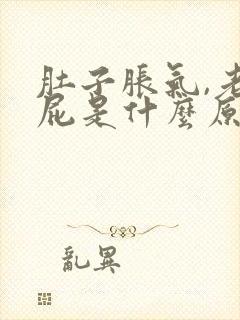 肚子脹氣,老
屁是什麼原
亂異